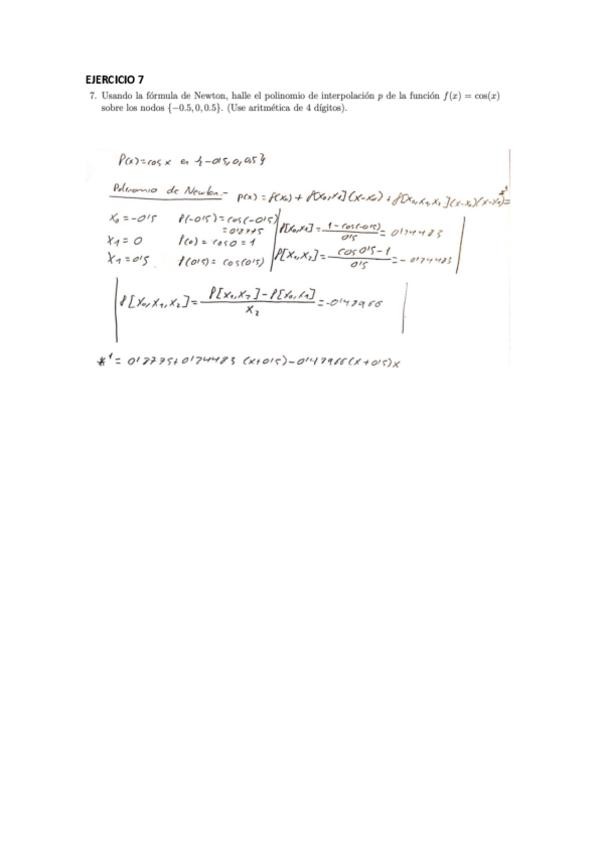 EJERCICIO 7
7. Usando la fórmula de Newton, halle el polinomio de interpolación p de la función f(x) = cos(x)
sobre los nodos {−0.5, 0, 0.5}. (Use aritmética de 4 dígitos).
f(x)=cos x en {-0'5, 0, 0'5}
Polinomio de Newton.- p(x) = f(x₀) + f[x₀,x₁](x-x₀) + f[x₀,x₁,x₂](x-x₀)(x-x₁) =
x₀ = -0'5 f(-0'5) = cos(-0'5) f[x₀,x₁] = (1-cos(-0'5))/0'5 = 0'24483
x₁ = 0 f(0) = cos 0 = 1
x₁ = 0'5 f(0'5) = cos(0'5) f[x₁,x₂] = (cos 0'5 - 1)/0'5 = -0'24483
f[x₀,x₁,x₂] = (f[x₁,x₂] - f[x₀,x₁])/x₂ = -0'47966
*¹ = 0'8775 + 0'24483 (x+0'5) - 0'47966 (x+0'5)x